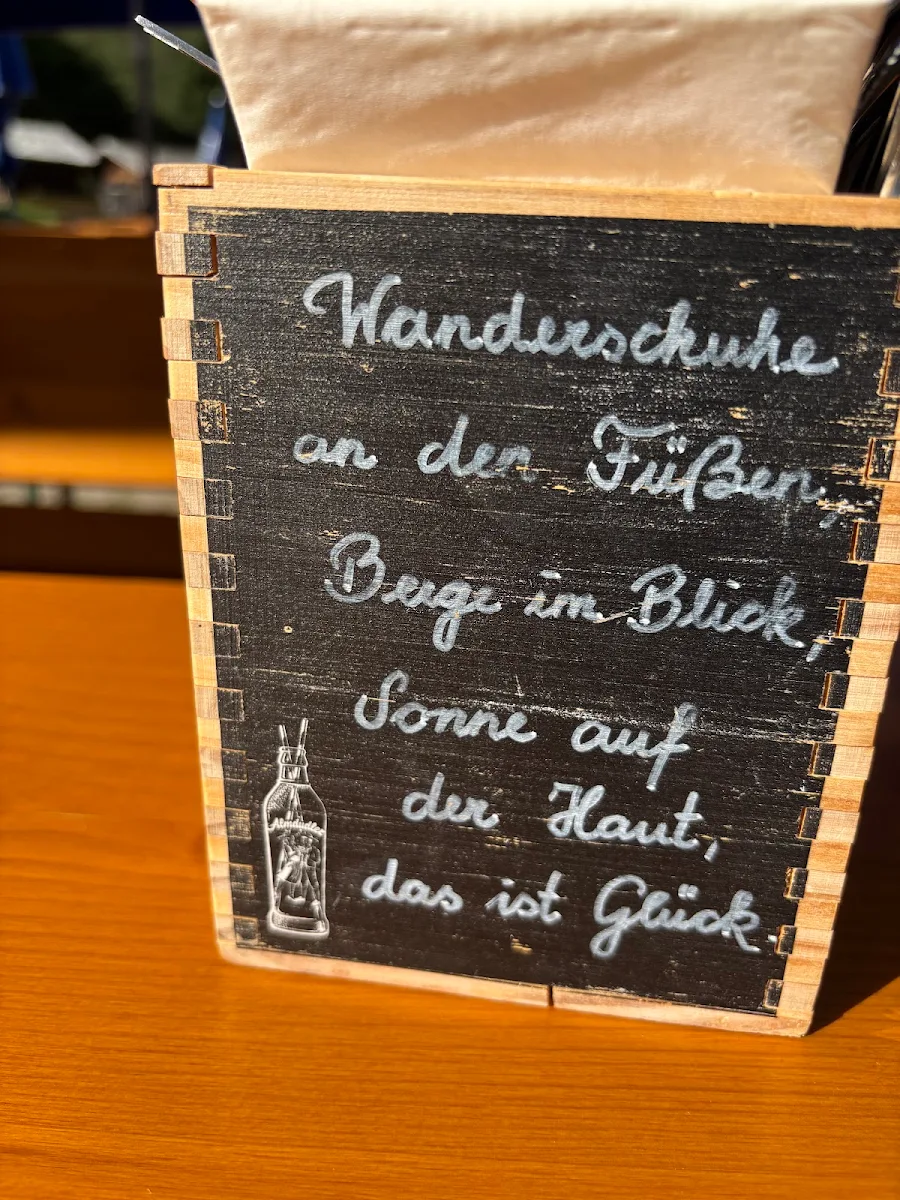 Wanderschuhe
an den Füßen,
Berge im Blick,
Sonne auf
der Haut,
das ist Glück.
Almdudler